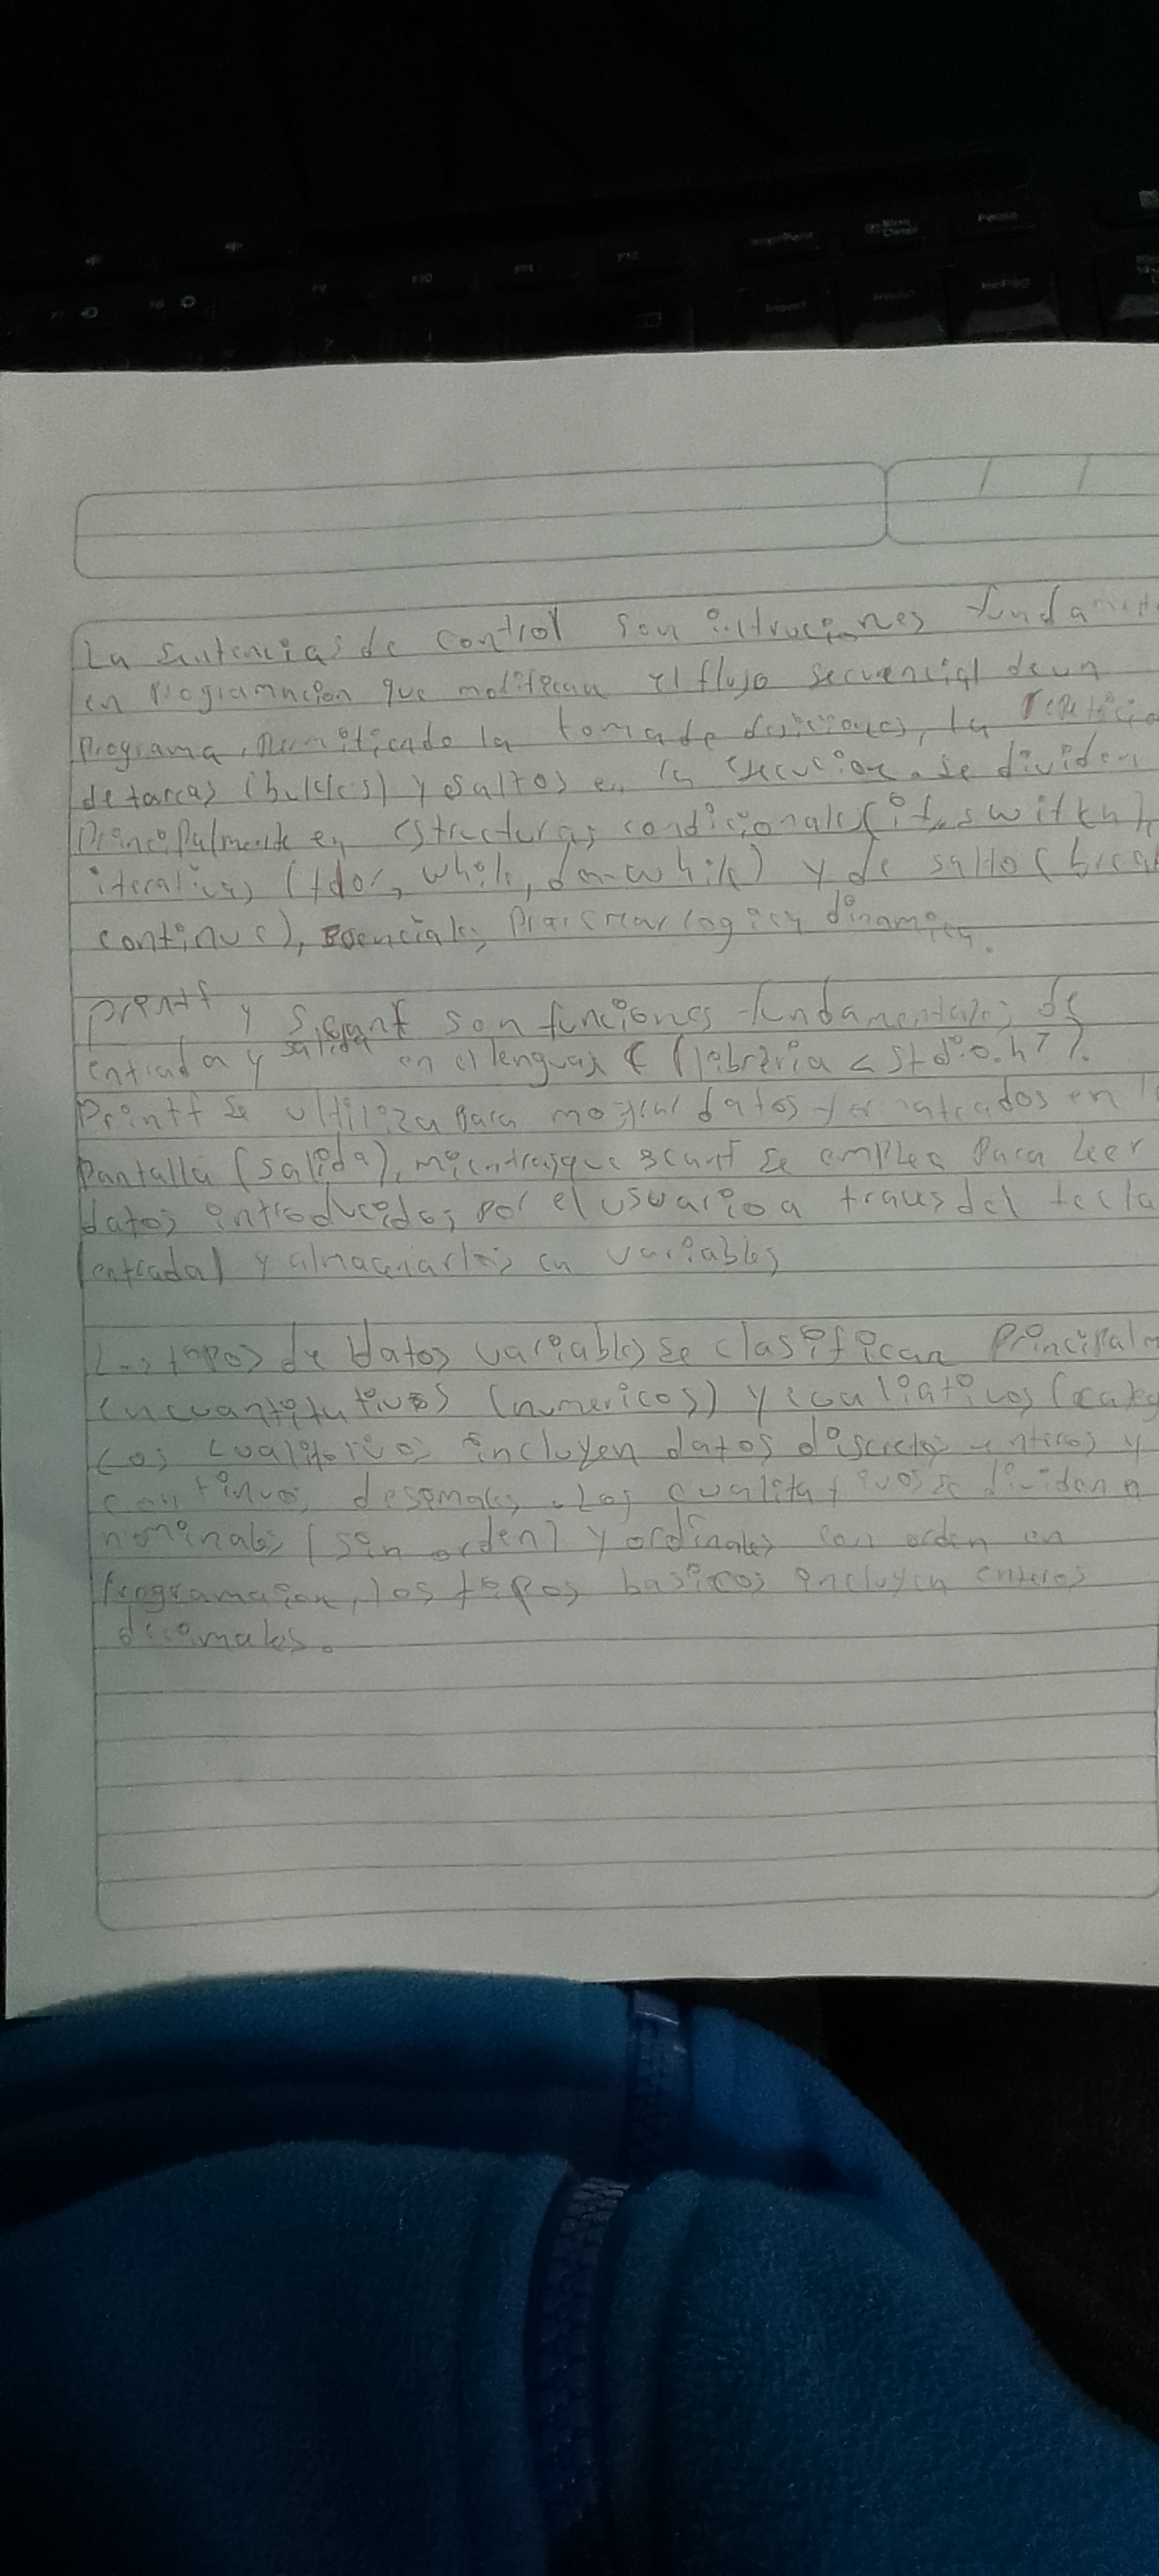 F9 F10 F11 F12
La sentencias de control son intruciones fundament
en programacion que modifican el flujo secuencial de un
programa, permitiendo la toma de desiciones, la repeticio
de tareas (bucles) y saltos en la ejecucion. se dividen
principalmente en estructuras condicionales (if, switch),
iterativas (for, while, do-while) y de salto (break
continue), esenciales para crear logica dinamica.
printf y scanf son funciones fundamentales de
entrada y salida en el lenguaje C (libreria < stdio.h>).
Printf se ultiliza para mostrar datos formateados en
Pantalla (salida), mientras que scanf se emplea para leer
datos introducidos por el usuario a traves del tecla
(entrada) y almacenarlos en variables
Los tipos de datos variables se clasifican Principalm
en cuantitativos (numericos) y cualiativos (categ
Los cualitativos incluyen datos discretos enteros y
continuos desimales. Los cualitativos se dividen
nominales (sin orden) y ordinales con orden en
Programacion, los tipos basicos incluyen enteros
decimales.